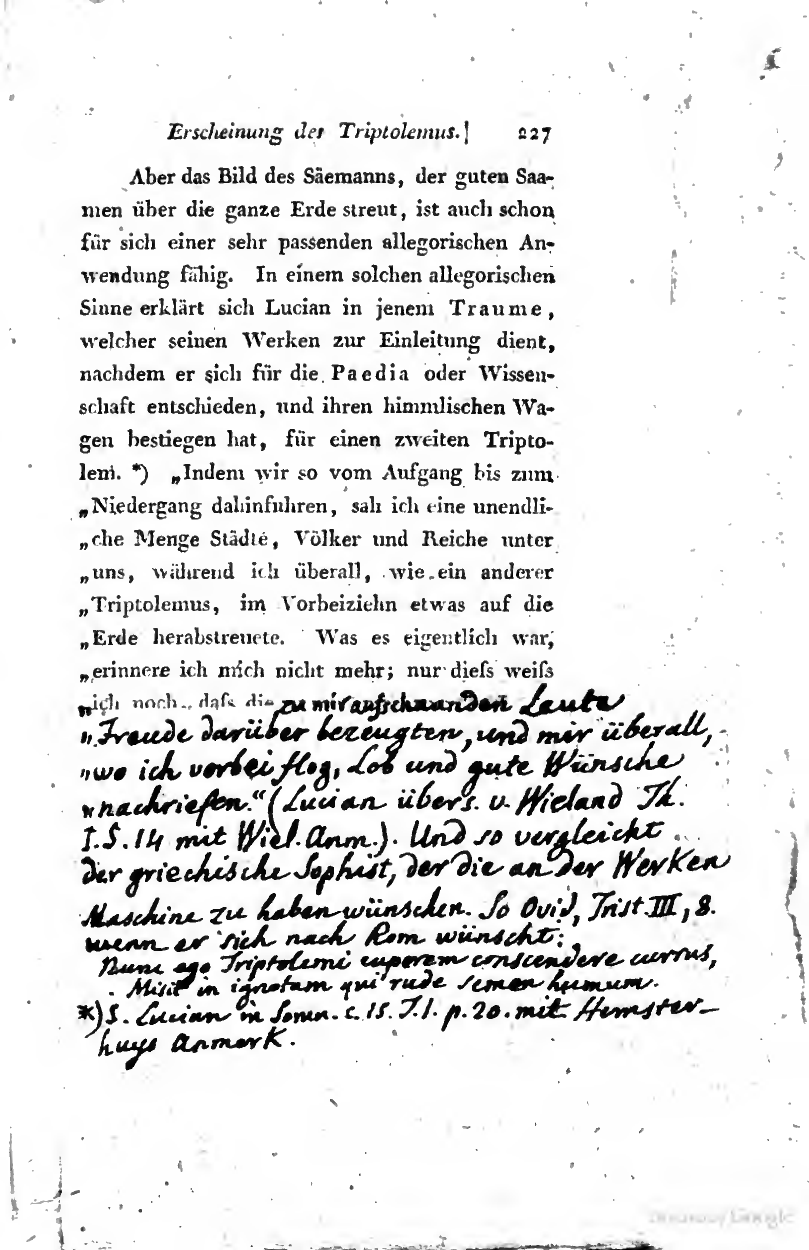 Erscheinung des Triptolemus. 227
Aber das Bild des Säemanns, der guten Saa-
men über die ganze Erde streut, ist auch schon
für sich einer sehr passenden allegorischen An-
wendung fähig. In einem solchen allegorischen
Sinne erklärt sich Lucian in jenem Traume,
welcher seinen Werken zur Einleitung dient,
nachdem er sich für die Paedia oder Wissen-
schaft entschieden, und ihren himmlischen Wa-
gen bestiegen hat, für einen zweiten Tripto-
lem. *) „Indem wir so vom Aufgang bis zum
„Niedergang dahinfuhren, sah ich eine unendli-
„che Menge Städte, Völker und Reiche unter
„uns, während ich überall, wie ein anderer
„Triptolemus, im Vorbeiziehn etwas auf die
„Erde herabstreuete. Was es eigentlich war,
„erinnere ich mich nicht mehr; nur diefs weifs
„ich noch, dafs die zu mir aufschauenden Leute
„Freude darüber bezeugten, und mir überall,
„wo ich vorbei flog, Lob und gute Wünsche
„nachriefen." (Lucian übers. v. Wieland Th.
I. S. 14 mit Wiel. Anm.). Und so vergleicht
der griechische Sophist, der die an der Werken
Maschine zu haben wünschen. So Ovid, Trist. III, 8.
wenn er sich nach Rom wünscht:
Nunc ego Triptolemi cuperem conscendere currus,
Misit in ignotam qui rude semen humum.
*) S. Lucian in Somn. c. 15. T. I. p. 20. mit Hemster-
huys Anmerk.